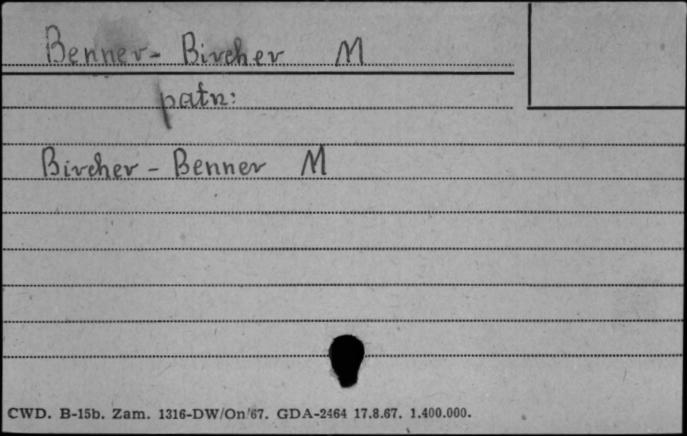 Benner - Bircher M
patrz:
Bircher - Benner M
CWD. B-15b. Zam. 1316-DW/On/67. GDA-2464 17.8.67. 1.400.000.